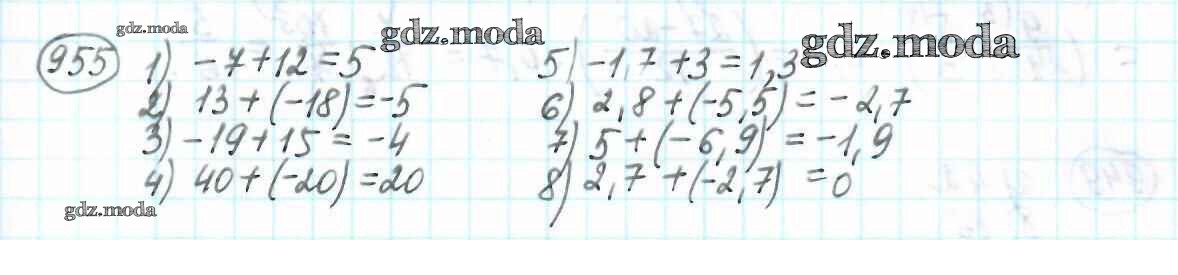 gdz.moda
gdz.moda
gdz.moda
955 1) -7+12=5
2) 13+(-18)=-5
3) -19+15=-4
4) 40+(-20)=20
5) -1,7+3=1,3
6) 2,8+(-5,5)=-2,7
7) 5+(-6,9)=-1,9
8) 2,7+(-2,7)=0
gdz.moda